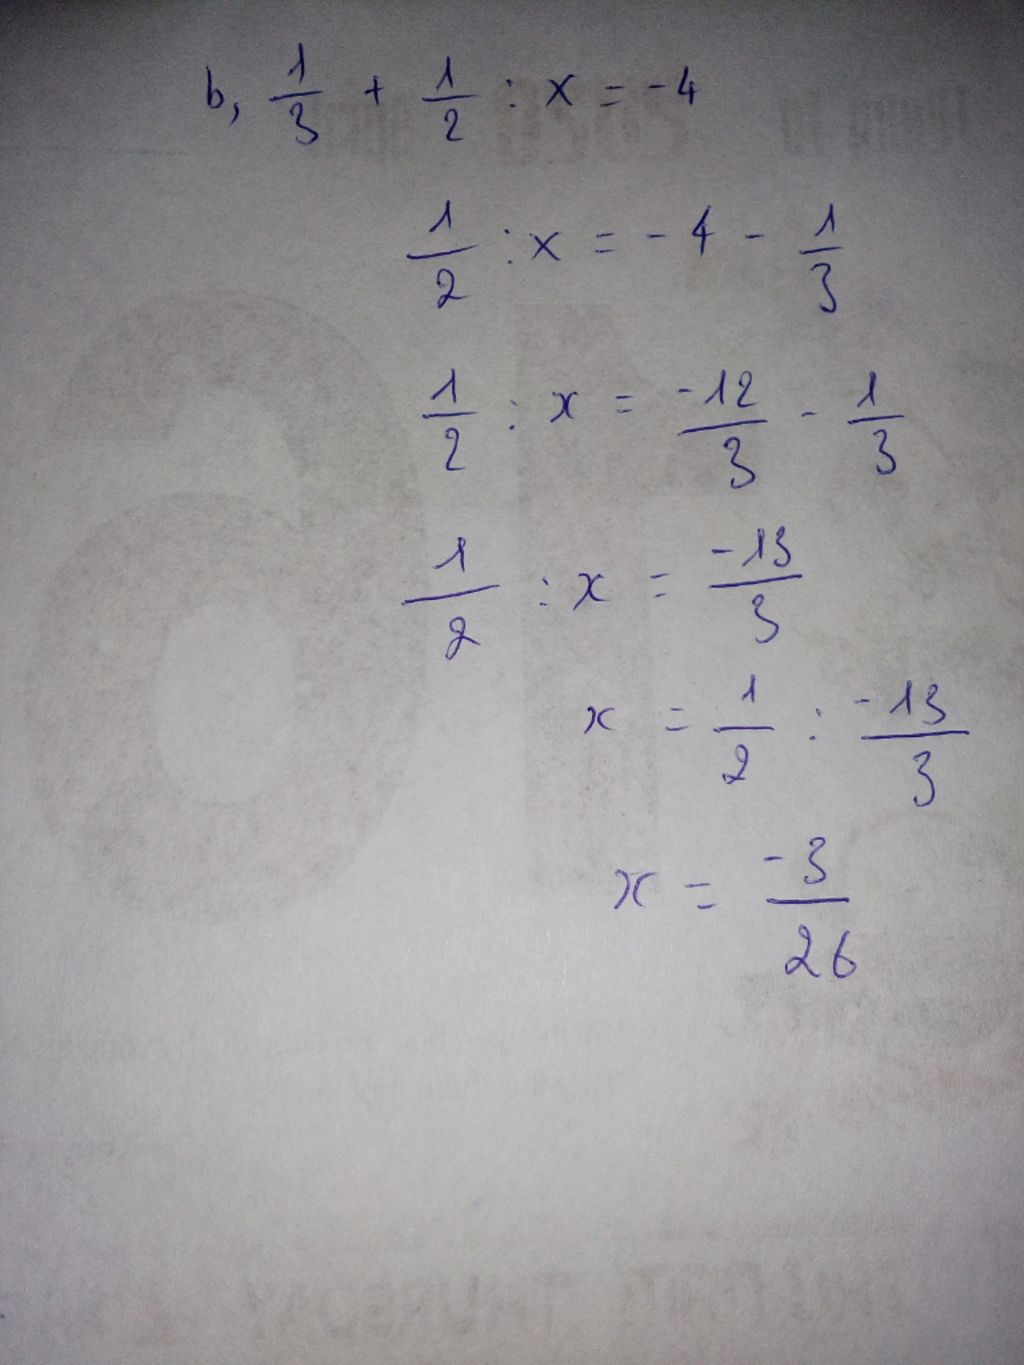 b, 1/3 + 1/2 : x = -4
1/2 : x = -4 - 1/3
1/2 : x = -12/3 - 1/3
1/2 : x = -13/3
x = 1/2 : -13/3
x = -3/26